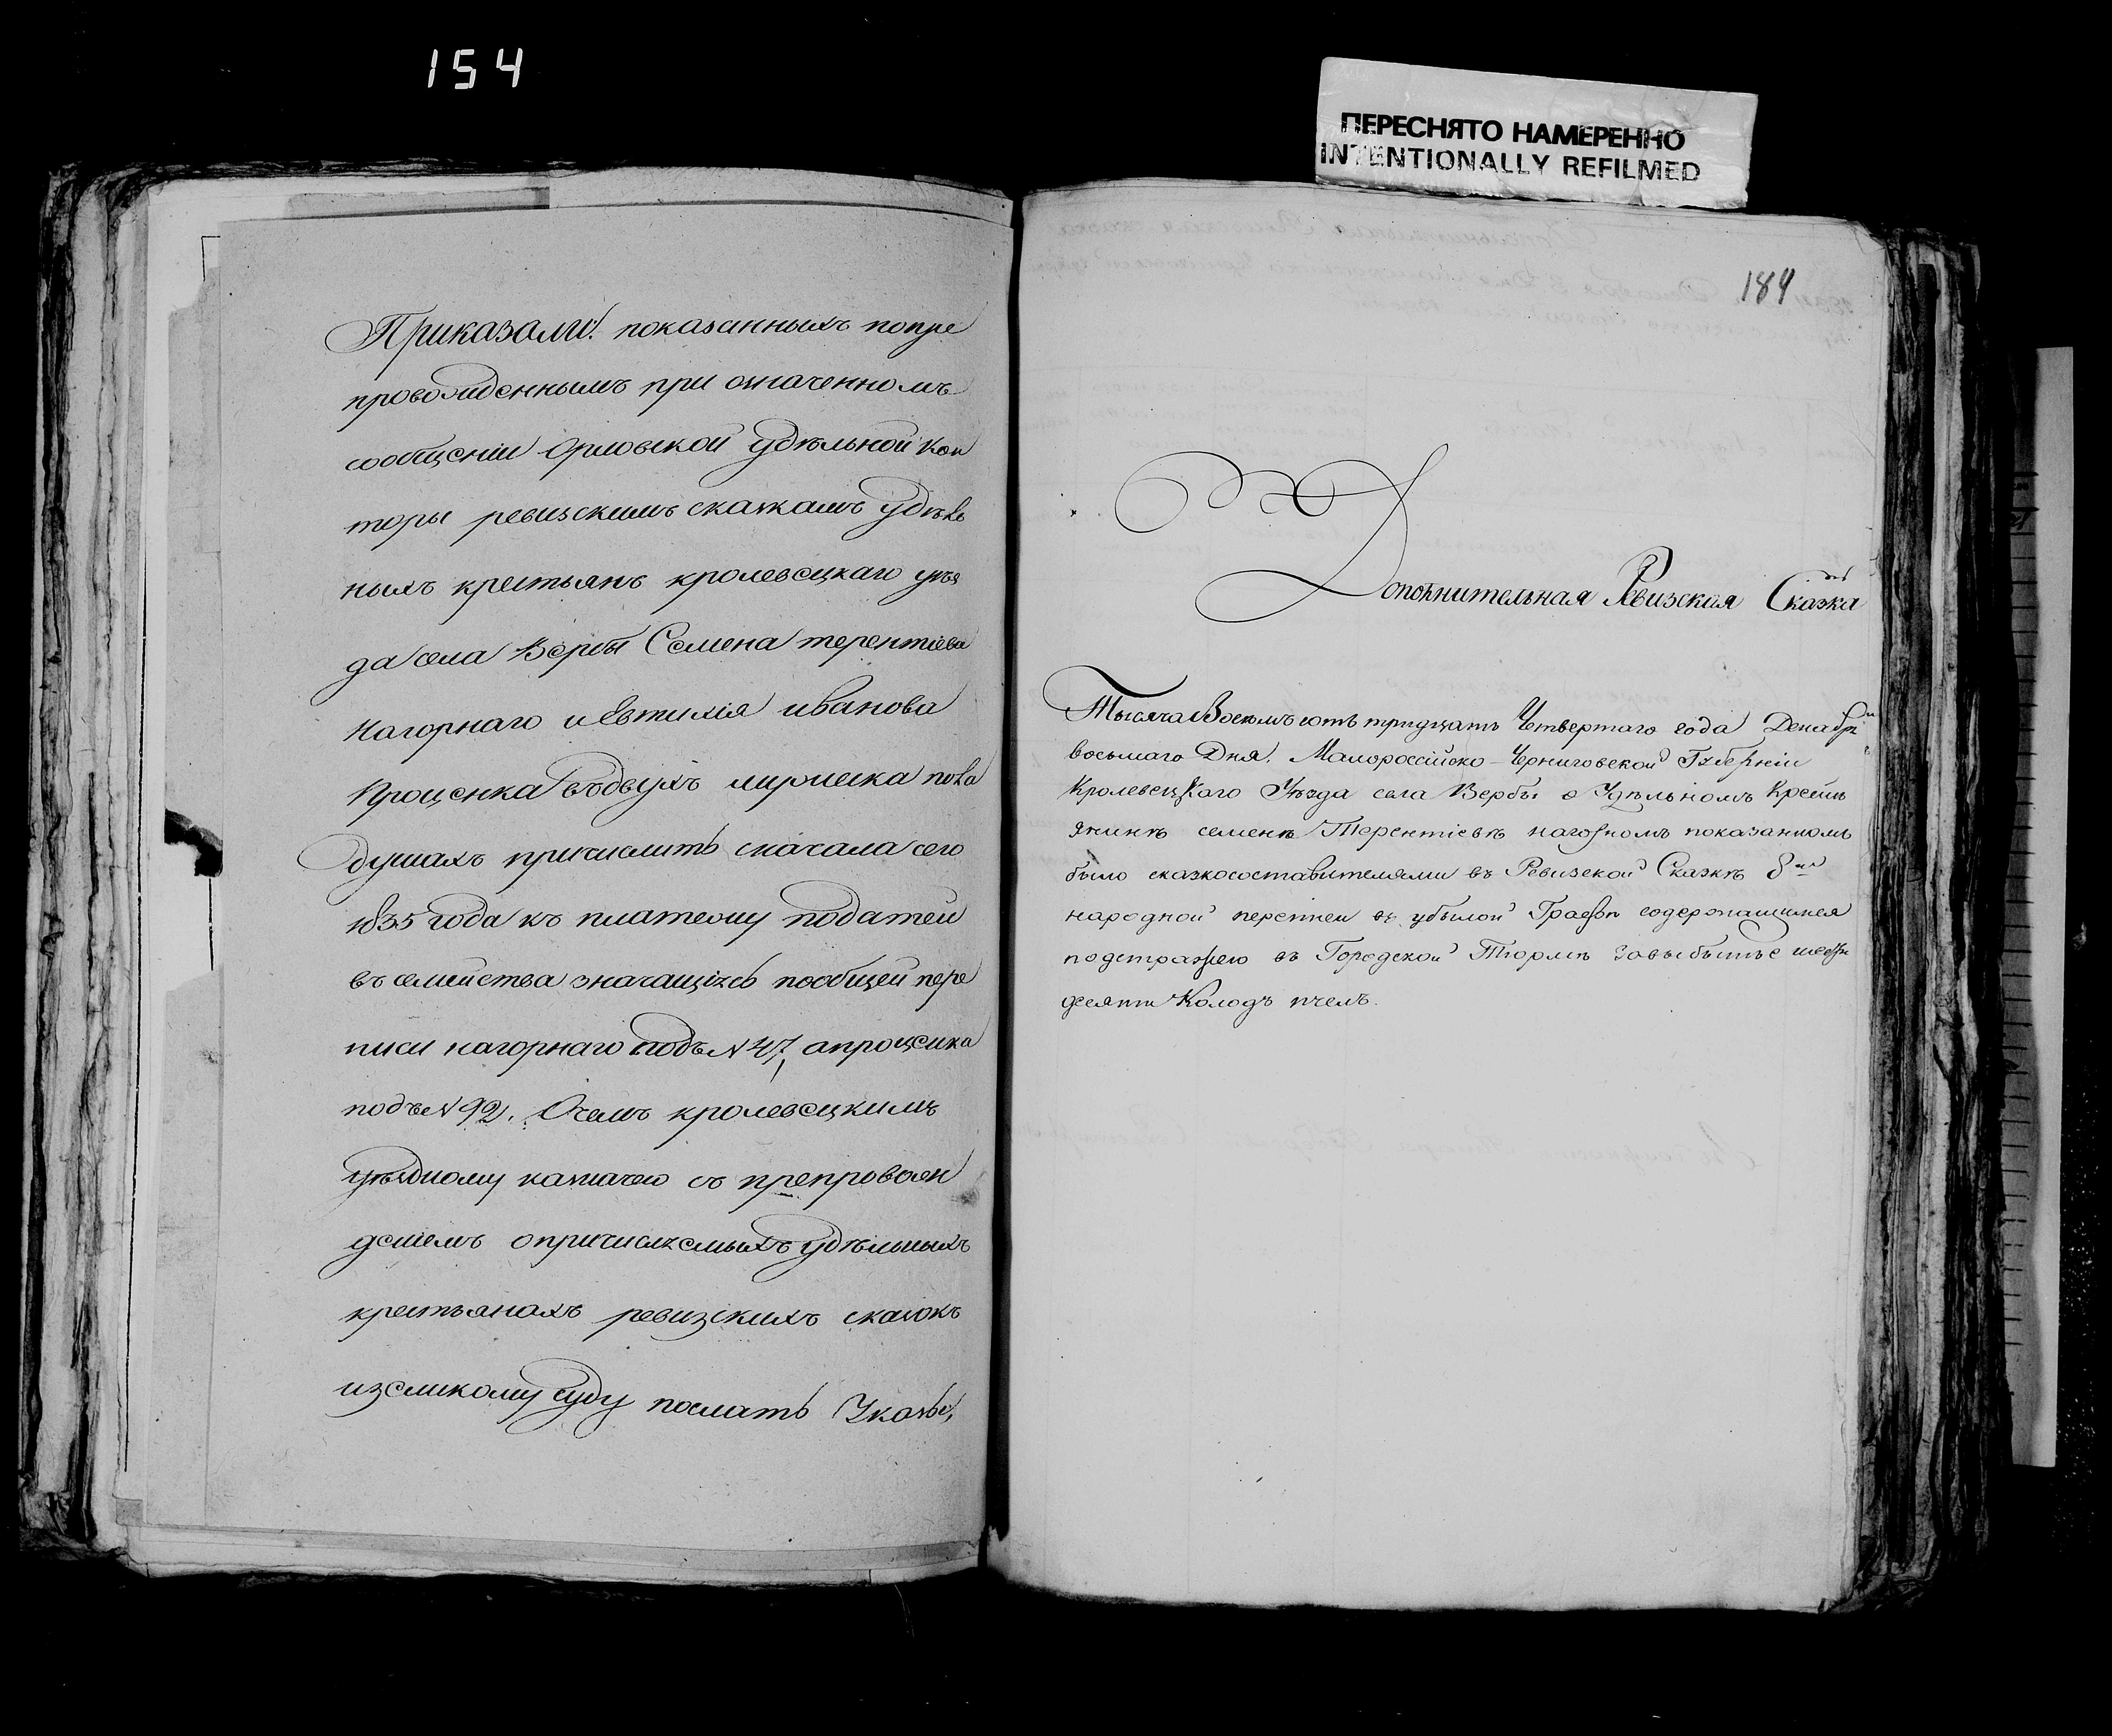 154
ПЕРЕСНЯТО НАМЕРЕННО
INTENTIONALLY REFILMED
Приказали: показанныхъ попре
провожденнымъ при означенномъ
сообщеніи Орловской удѣльной кон
торы ревизскимъ сказкамъ удѣль
ныхъ крестьянъ кролевецкаго уѣз
да села Вербы Семена терентіева
Нагорнаго и Евтихія иванова
Проценка въ двухъ мужеска пола
душахъ причислить сначала сего
1835 года къ платежу податей
въ семейства значащіхсь пообщей пере
писи нагорнаго подъ N 47, апроценка
подъ N 92. Очемъ кролевецкимъ
уѣздному казначею съ препровож
деніемъ опричисляемыхъ удѣльныхъ
крестьянахъ ревизскихъ сказокъ
изсмикому суду послать Указы,
184
Дополнительная Ревизская Сказка
Тысяча Восемъ сотъ тридцать Четвертаго года Декабря
восьмаго Дня. Малороссійско-Черниговской Губерніи
Кролевецкаго Уѣзда села Вербы о Удѣльномъ Кресть
янинѣ семенѣ Терентіевѣ нагорномъ показанномъ
было сказкосоставителями въ Ревизской Сказкѣ 8й
народной переписи въ убылой Графѣ содержащимся
подстражею въ Городской Тюрмѣ
десяти Колодъ пчелъ.